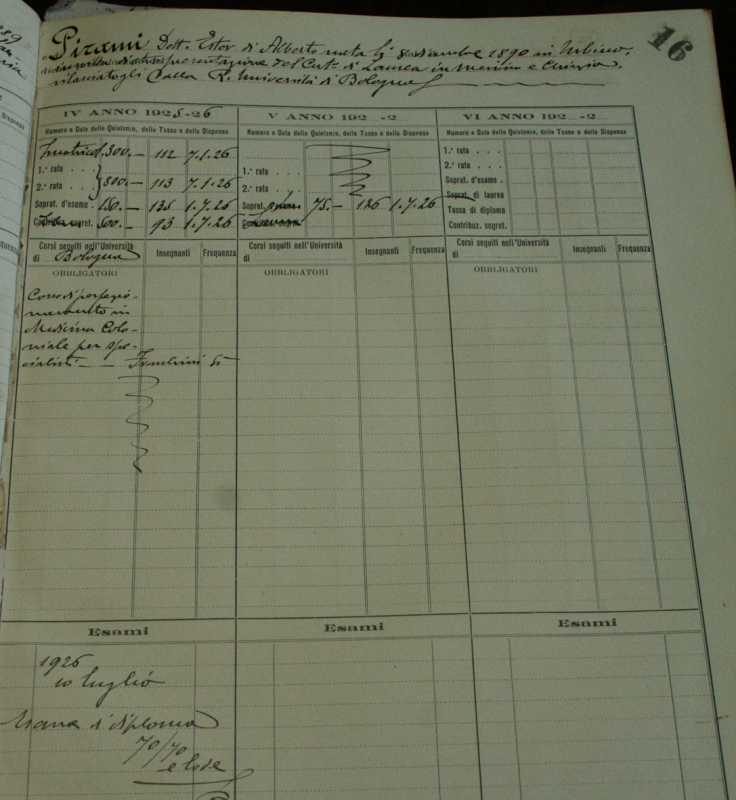 16
Pirami Dott. Ester di Alberto nata li 8 dicembre 1890 in Urbino,
presentazione del Cert.
rilasciatogli dalla R. Università di Bologna
IV ANNO 1925-26
V ANNO 192 -2
VI ANNO 192 -2
Numero e Data delle Quietanze, delle Tasse e delle Dispense
Numero e Data delle Quietanze, delle Tasse e delle Dispense
Numero e Data delle Quietanze, delle Tasse e delle Dispense
300.— 112 7.1.26
1.ª rata . . .
2.ª rata . . . 800.— 113 7.1.26
Soprat. d'esame . 150.— 135 1.7.26
sopret. 93 1.7.26
1.ª rata . . .
2.ª rata . . .
Soprat. 75.— 136 1.7.26
1.ª rata . . .
2.ª rata . . .
Soprat. d'esame .
Soprat. di laurea
Tassa di diploma
Contribuz. segret.
Corsi seguiti nell'Università
di Bologna
Insegnanti
Frequenza
Corsi seguiti nell'Università
di
Insegnanti
Frequenza
Corsi seguiti nell'Università
di
Insegnanti
Frequenza
OBBLIGATORI
OBBLIGATORI
OBBLIGATORI
Corso di perfezio-
namento in
Medicina Colo-
niale per spe-
cialisti —
Esami
Esami
Esami
1926
10 luglio
Esame di diploma
70/70
e lode